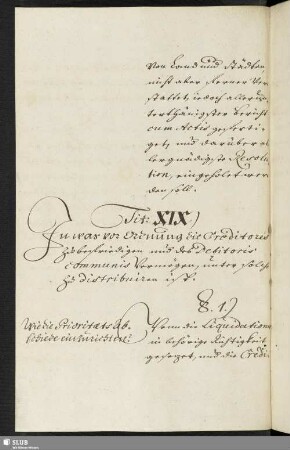 von Land und Städten
nicht aber ferner ver-
stattet, jedoch allerun-
terthänigster Bericht
cum Actis geferti-
get, und darüber al-
lergnädigste Resolu-
tion, eingeholet wer-
den soll.
Tit: XIX)
In was vor Ordnung die Creditores
zu befriedigen und des Debitoris
communis Vermögen, unter solche
zu distribuiren ist.
§. 1.)
Wie die Prioritäts Ab-
schiede einzurichten.
Wenn die Liquidationes
in behörige Richtigkeit
gesezet, und die Credi-
SLUB